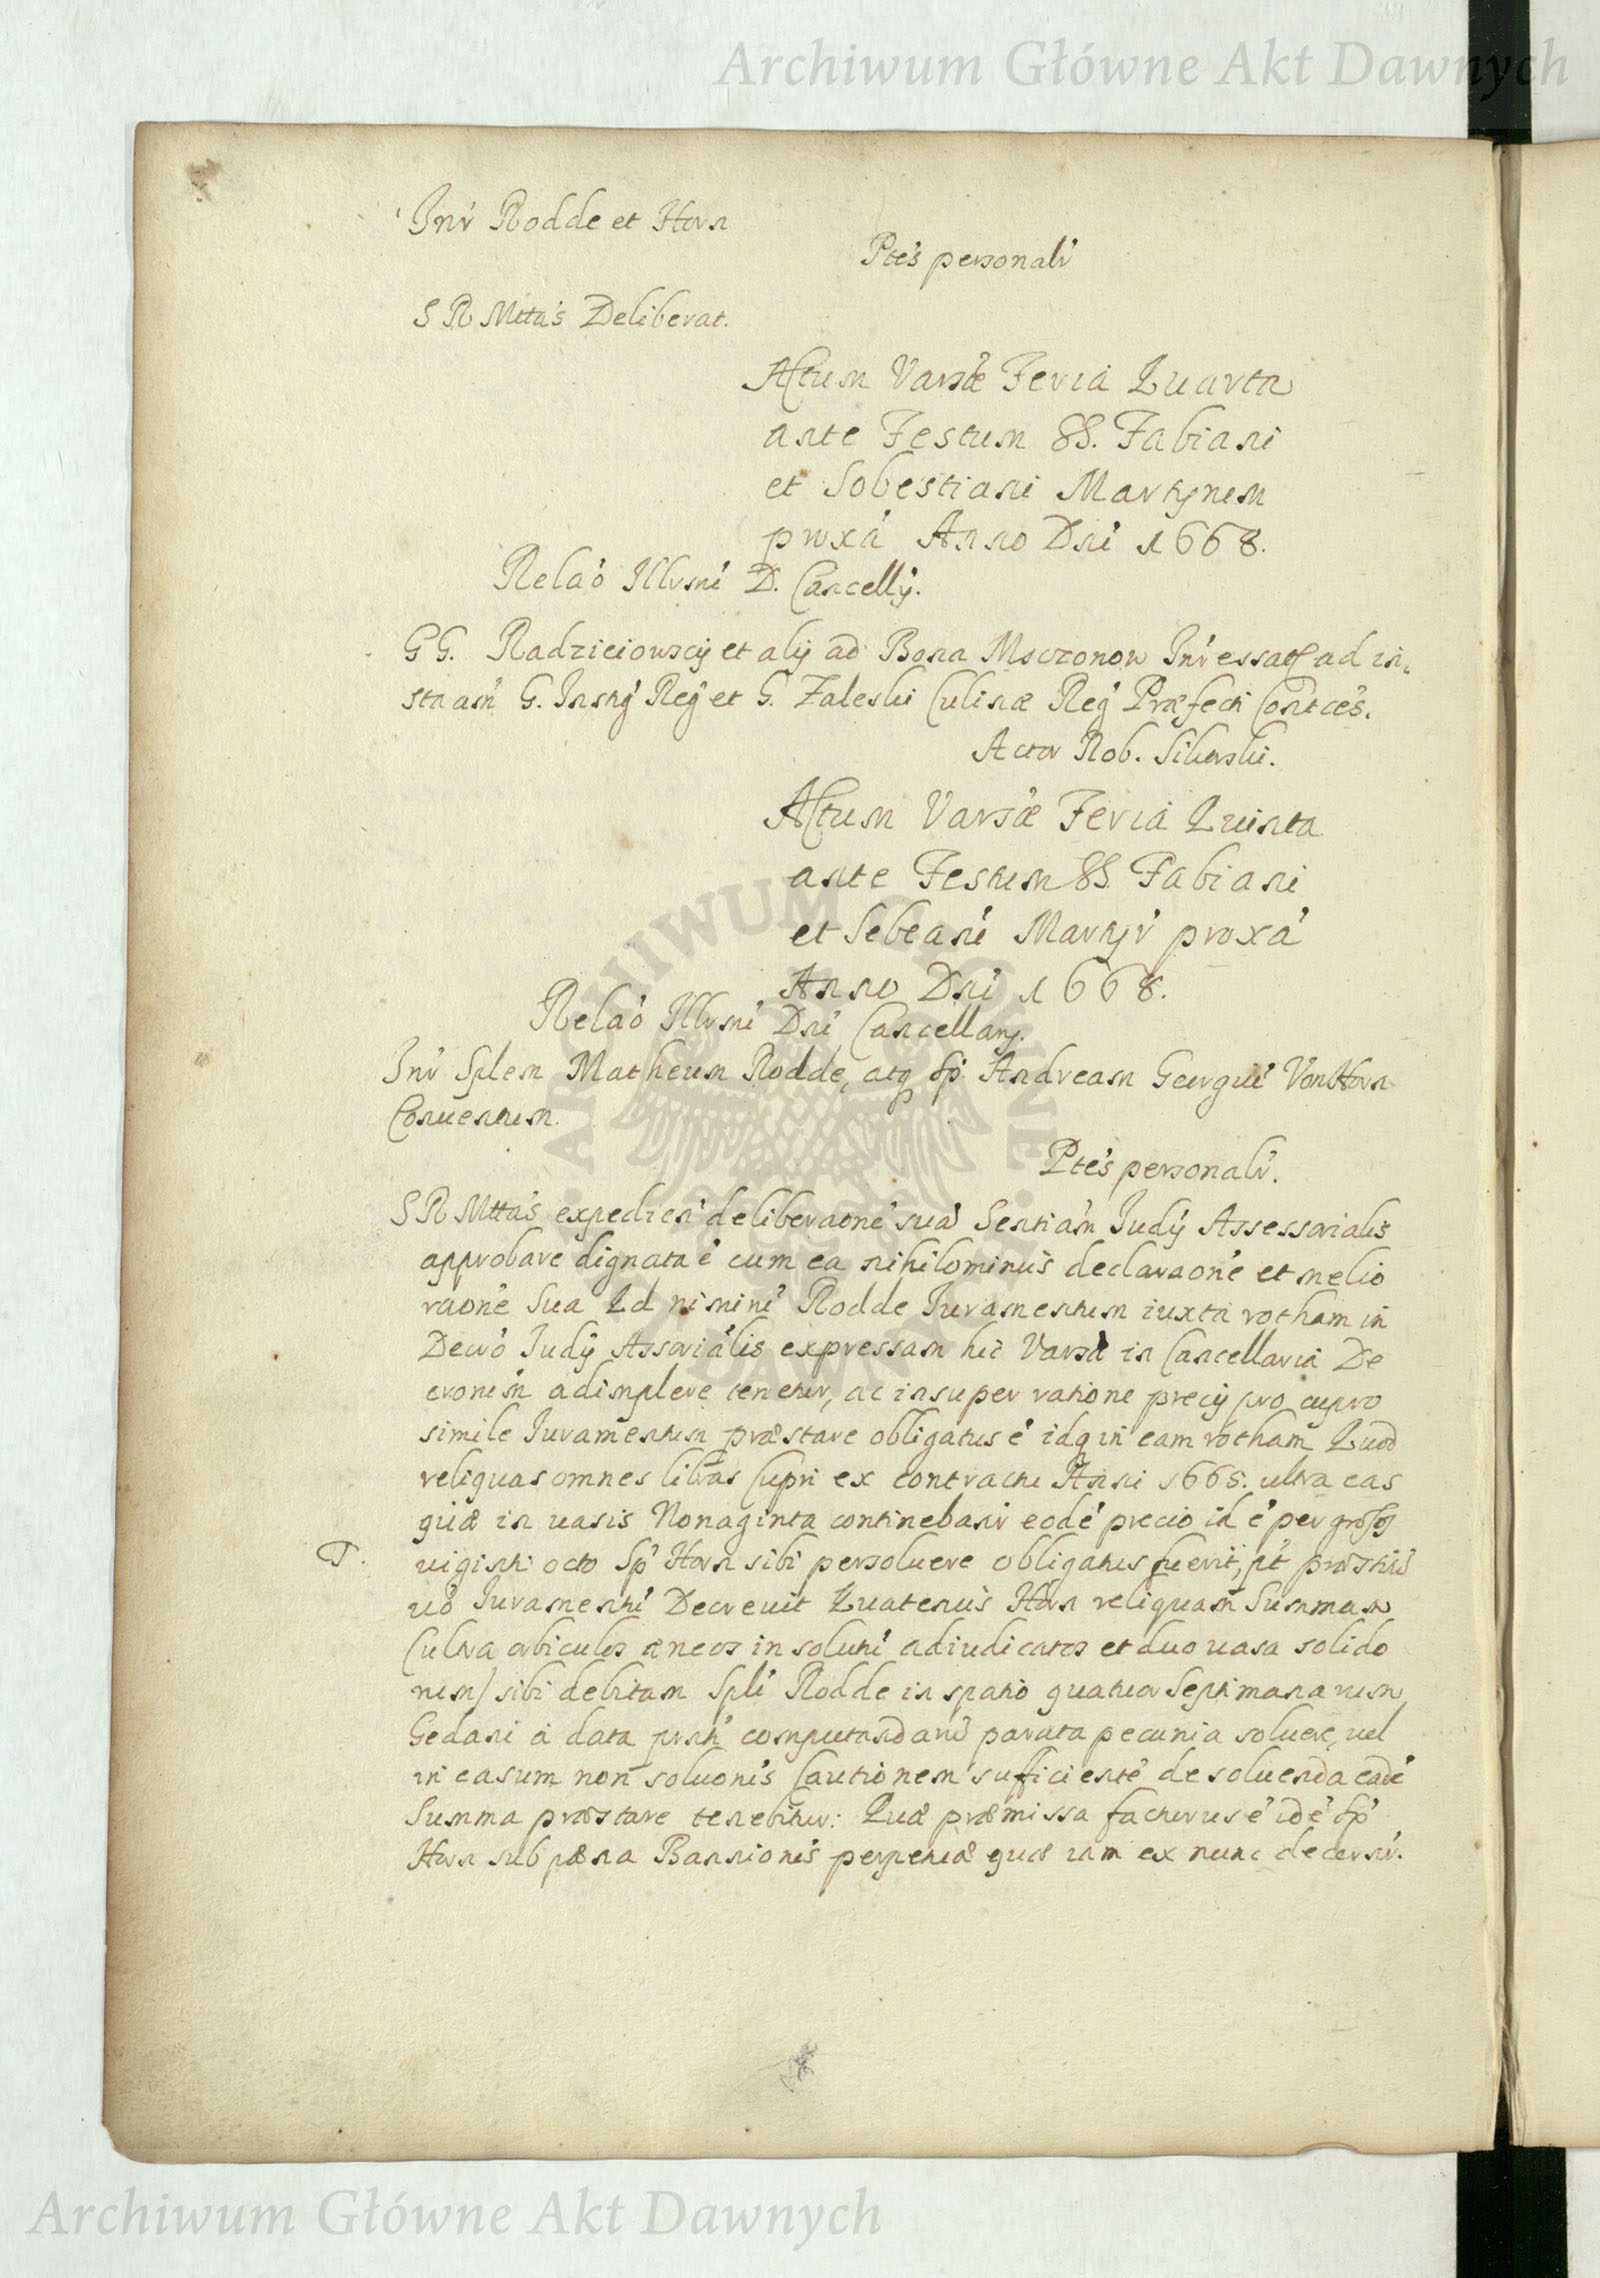 Archiwum Główne Akt Dawnych
Inr̃ Rodde et Horn
Ptẽs personalr̃
S R Mttãs Deliberat.
Actum Varsæ Feria Quarta
ante Festum SS. Fabiani
et Sobestiani Martyrum
proxã Anno Dnĩ 1668.
Relaõ Illvsmĩ D. Cancellỹ.
GG. Radzieiowscy et alij ad Bona Msczonow ad in-
stnãm G. Instig̃ Reg̃ et G. Zaleski Culinæ Reg̃ Præfecti Contcẽs.
Actor Nob. Sikorski.
Actum Varsæ Feria Quinta
ante Festum SS. Fabiani
et Sebeanĩ Martyr̃ proxã
Anno Dnĩ 1668.
Relaõ Illvsmĩ Dnĩ Cancellarij.
Inr̃ Splem Matheum Rodde, atq̃ Sp̃ Andream Georgiũ Von Horn
Conuentum.
Ptẽs personalr̃.
S R Mttãs expedien̄ deliberaonẽ suã Sentiãm Judỹ Assessorialis
approbare dignata ẽ cum ea nihilominus declaraonẽ et melio
raonẽ sua Qd niminĩ Rodde Iuramentum iuxta rotham in
Decrõ Judỹ Assoriãlis expressam hic Varsã in Cancellaria De
cronũm adimplere tenetur, ac insuper ratione precij pro cupro
simile Iuramentum præstare obligatus ẽ idq̃ in eam rotham Quod
reliquas omnes libras Cupri ex contractu Anni 1665. ultra eas
quæ in uasis Nonaginta continebanr̃ eodẽ precio id ẽ per grossos
T. uiginti octo Sp̃ Horn sibi persoluere obligatus fuerit, pt̃ præstitũ
uõ Iuramentĩ Decreuit Quatenus Horn reliquam Summam
(ultra orbiculos æneos in solutũ adiudicatos et duo uasa solido
rum) sibi debitam Splĩ Rodde in spatio quatuor Septimanarum
Gedani à data prntĩ computandarũ parata pecunia soluere, uel
in casum non soluonĩs Cautionem sufficientẽ de soluenda eadẽ
Summa præstare tenebitur: Quæ præmissa facturus ẽ idẽ Sp̃
Horn sub pæna Bannionĩs perpetuæ quæ iam ex nunc decernr̃.
Archiwum Główne Akt Dawnych